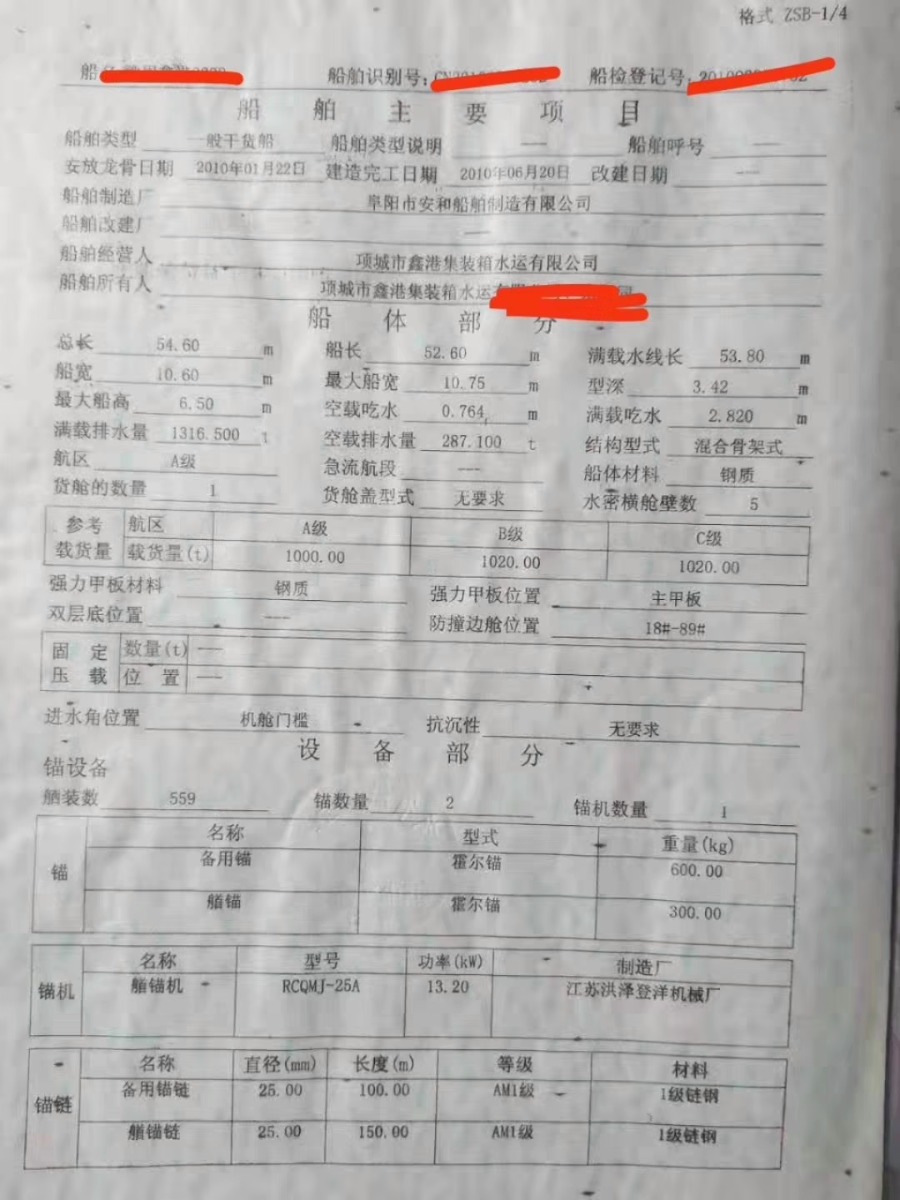 格式 ZSB-1/4
船 船舶识别号: 船检登记号:
船舶主要项目
船舶类型 一般干货船 船舶类型说明 —— 船舶呼号 ——
安放龙骨日期 2010年01月22日 建造完工日期 2010年06月20日 改建日期 ——
船舶制造厂 阜阳市安和船舶制造有限公司
船舶改建厂 ——
船舶经营人 项城市鑫港集装箱水运有限公司
船舶所有人 项城市鑫港集装箱水运
船体部分
总长 54.60 m 船长 52.60 m 满载水线长 53.80 m
船宽 10.60 m 最大船宽 10.75 m 型深 3.42 m
最大船高 6.50 m 空载吃水 0.764 m 满载吃水 2.820 m
满载排水量 1316.500 t 空载排水量 287.100 t 结构型式 混合骨架式
航区 A级 急流航段 --- 船体材料 钢质
货舱的数量 1 货舱盖型式 无要求 水密横舱壁数 5
参考载货量 航区 A级 B级 C级
载货量(t) 1000.00 1020.00 1020.00
强力甲板材料 钢质 强力甲板位置 主甲板
双层底位置 --- 防撞边舱位置 18#-89#
固定压载 数量(t) ——
位置 ——
进水角位置 机舱门槛 抗沉性 无要求
设备部分
锚设备
舾装数 559 锚数量 2 锚机数量 1
锚 名称 型式 重量(kg)
备用锚 霍尔锚 600.00
艏锚 霍尔锚 300.00
锚机 名称 型号 功率(kW) 制造厂
艏锚机 RCQMJ-25A 13.20 江苏洪泽登洋机械厂
锚链 名称 直径(mm) 长度(m) 等级 材料
备用锚链 25.00 100.00 AM1级 1级链钢
艏锚链 25.00 150.00 AM1级 1级链钢